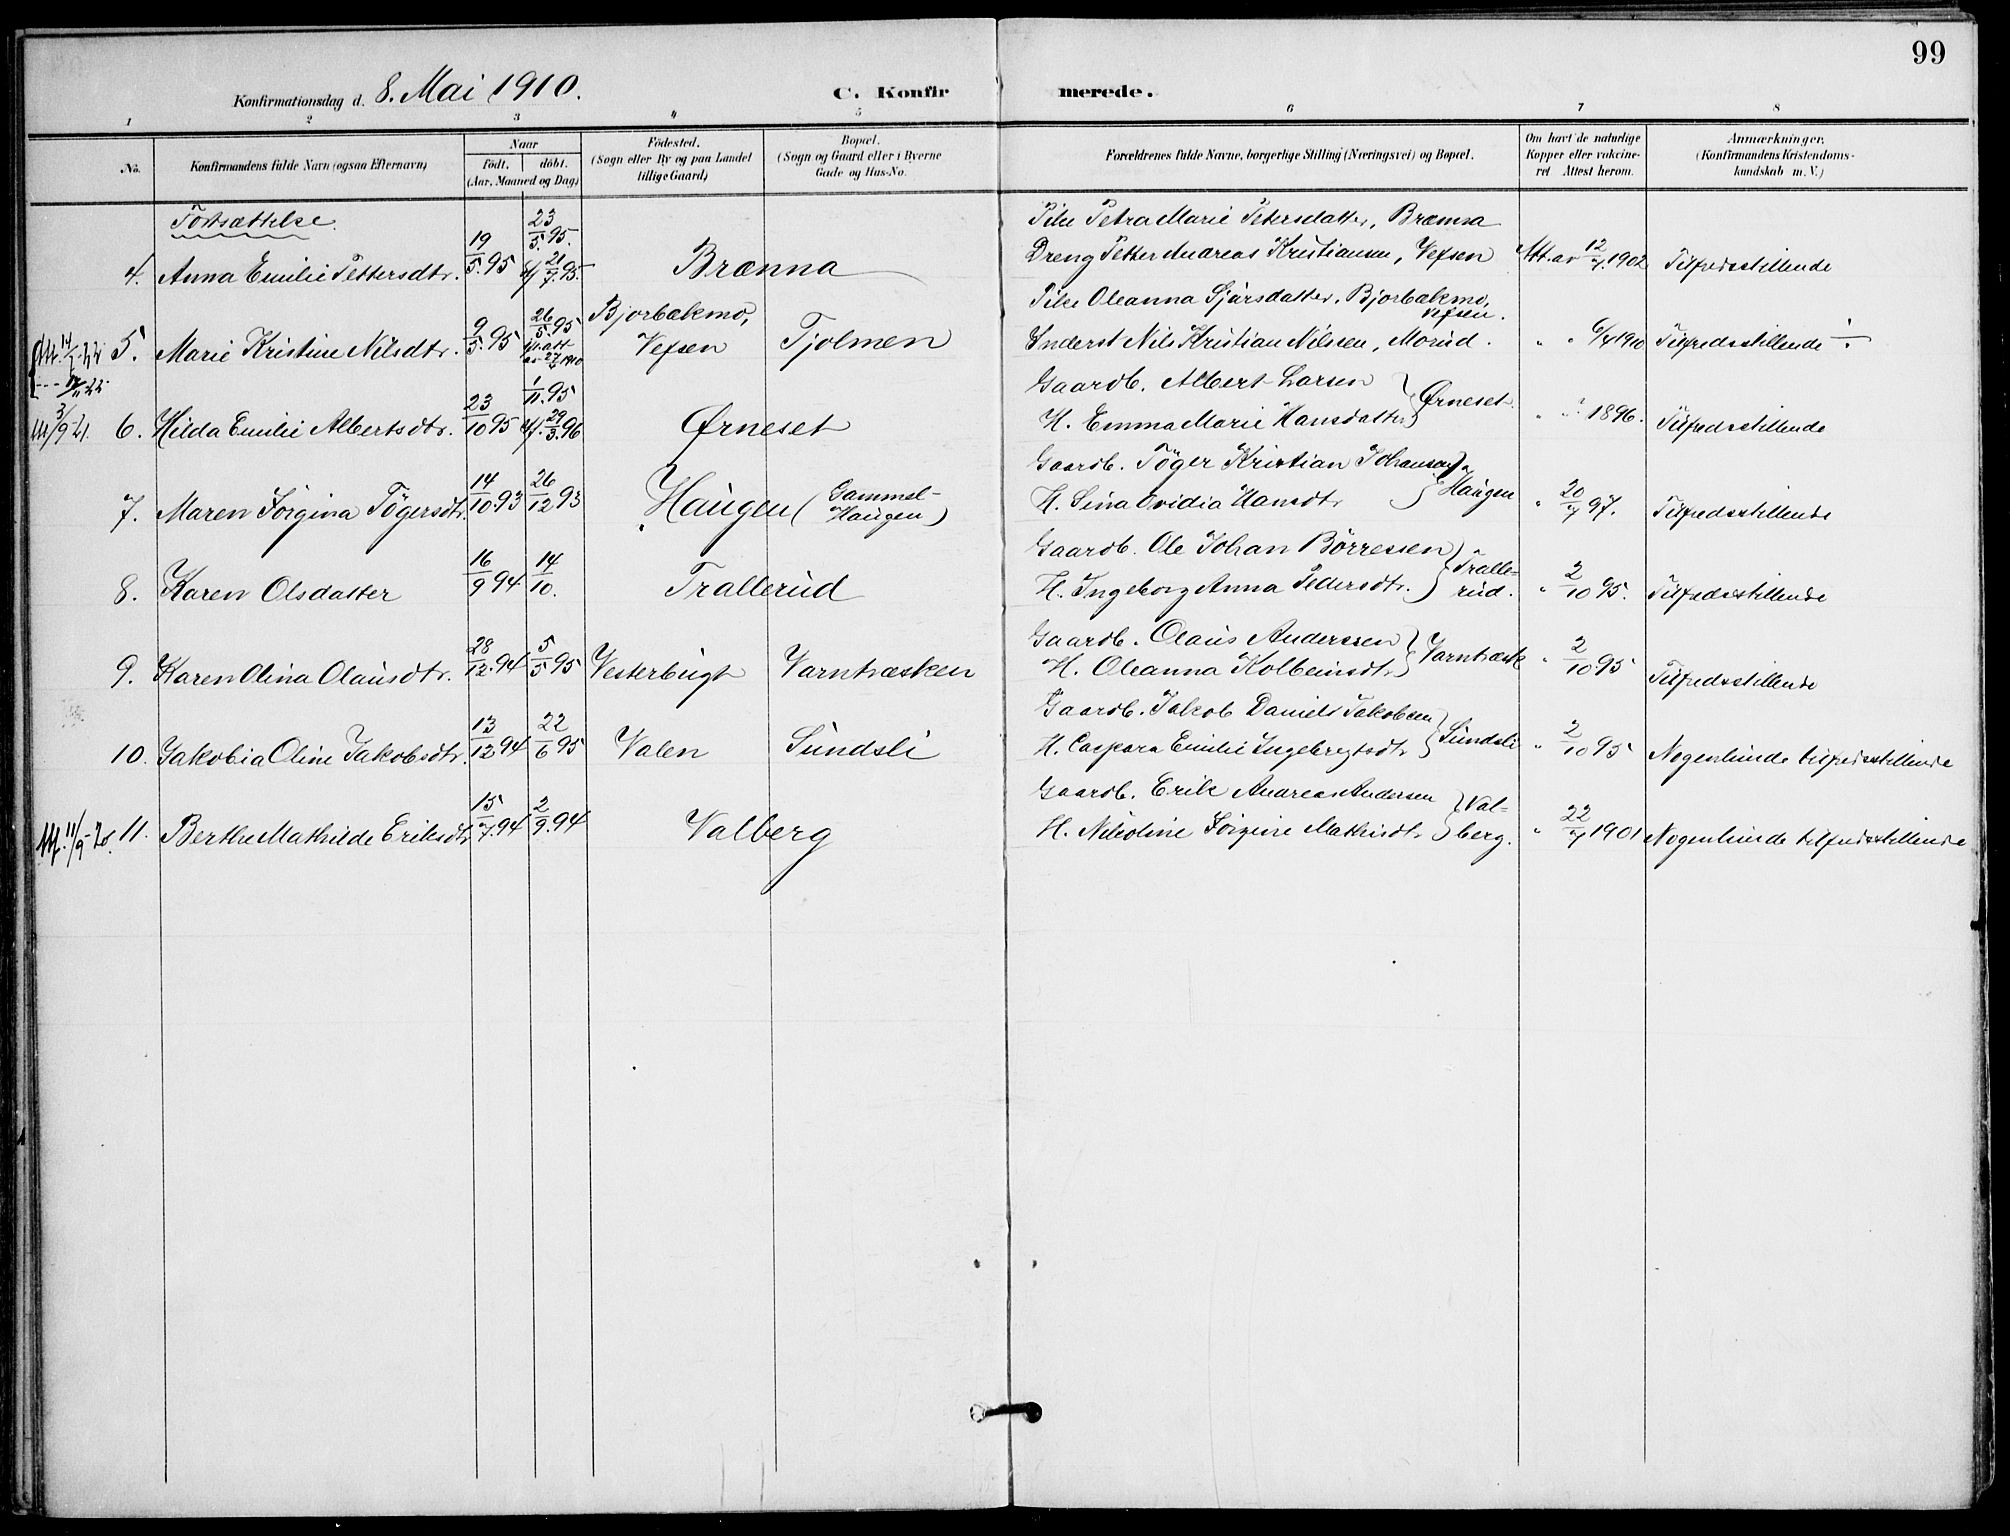 99
Konfirmationsdag d. 8. Mai 1910.
C. Konfir merede.
1 2 3 4 5 6 7 8
No.
Konfirmandens fulde Navn (ogsaa Efternavn)
Naar
födt. döbt.
(Aar, Maaned og Dag)
Födested.
(Sogn eller By og paa Landet
tillige Gaard)
Bopæl.
(Sogn og Gaard eller i Byerne
Gade og Hus-No.
Forældrenes fulde Navne, borgerlige Stilling (Næringsvei) og Bopæl.
Om havt de naturlige
Kopper eller vakcine-
ret Attest herom.
Anmærkninger.
(Konfirmandens Kristendoms-
kundskab m. V.)
Fortsættelse.
4. Anna Emilie Pettersdtr. 19/5.95 23/5.95. 21/7.95. Brænna
Pike Petra Marie Petersdatter, Brænna
Dreng Petter Andreas Kristiansen, Vefsen Att. av 12/7.1902 Tilfredsstillende
5. Marie Kristine Nilsdtr. 9/5.95 26/5.95 Bjorbækmo,
Vefsen Tjolmen
Pike Oleanna Sjursdatter, Bjorbækmo,
Vefsen.
Inderst Nils Kristian Nilsen, Morud. " " 6/4 1910 Tilfredsstillende
6. Hilda Emilie Albertsdtr. 23/10 95 1/11.95 29/3.96 Ørneset
Gaardb. Albert Larsen
H. Emma Marie Hansdatter } Ørneset " 1896. Tilfredsstillende
7. Maren Jörgina Tögersdtr. 14/10.93 26/12 93 Haugen (Gammel-
Haugen)
Gaardb. Töger Kristian Johansen
H. Sina Ovidia Hansdtr } Haugen " 20/7 97. Tilfredsstillende
8. Karen Olsdatter 16/9 94 14/10. Trallerud
Gaardb. Ole Johan Börressen
H. Ingeborg Anna Pedersdtr. } Tralle-
rud. " 2/10 95. Tilfredsstillende
9. Karen Olina Olausdtr. 28/12.94 5/5 95 Vesterbugt Varntræsken
Gaardb. Olaus Anderssen
H. Oleanna Kolbeinsdtr } Varntræsk " 2/10 95 Tilfredsstillende
10. Jakobia Oline Jakobsdtr. 13/12.94 22/6 95 Valen Sundsli
Gaardb. Jakob Daniels Jakobsen
H. Caspara Emilie Ingebregtsdtr } Sundsli " 2/10 95 Nogenlunde tilfredsstillende
11. Berthe Mathilde Eriksdtr 15/7.94 2/9.94 Valberg
Gaardb. Erik Andreas Andersen
H. Nikoline Jörgine Mathisdtr } Val-
berg. " 22/7 1901 Nogenlunde tilfredsstillende